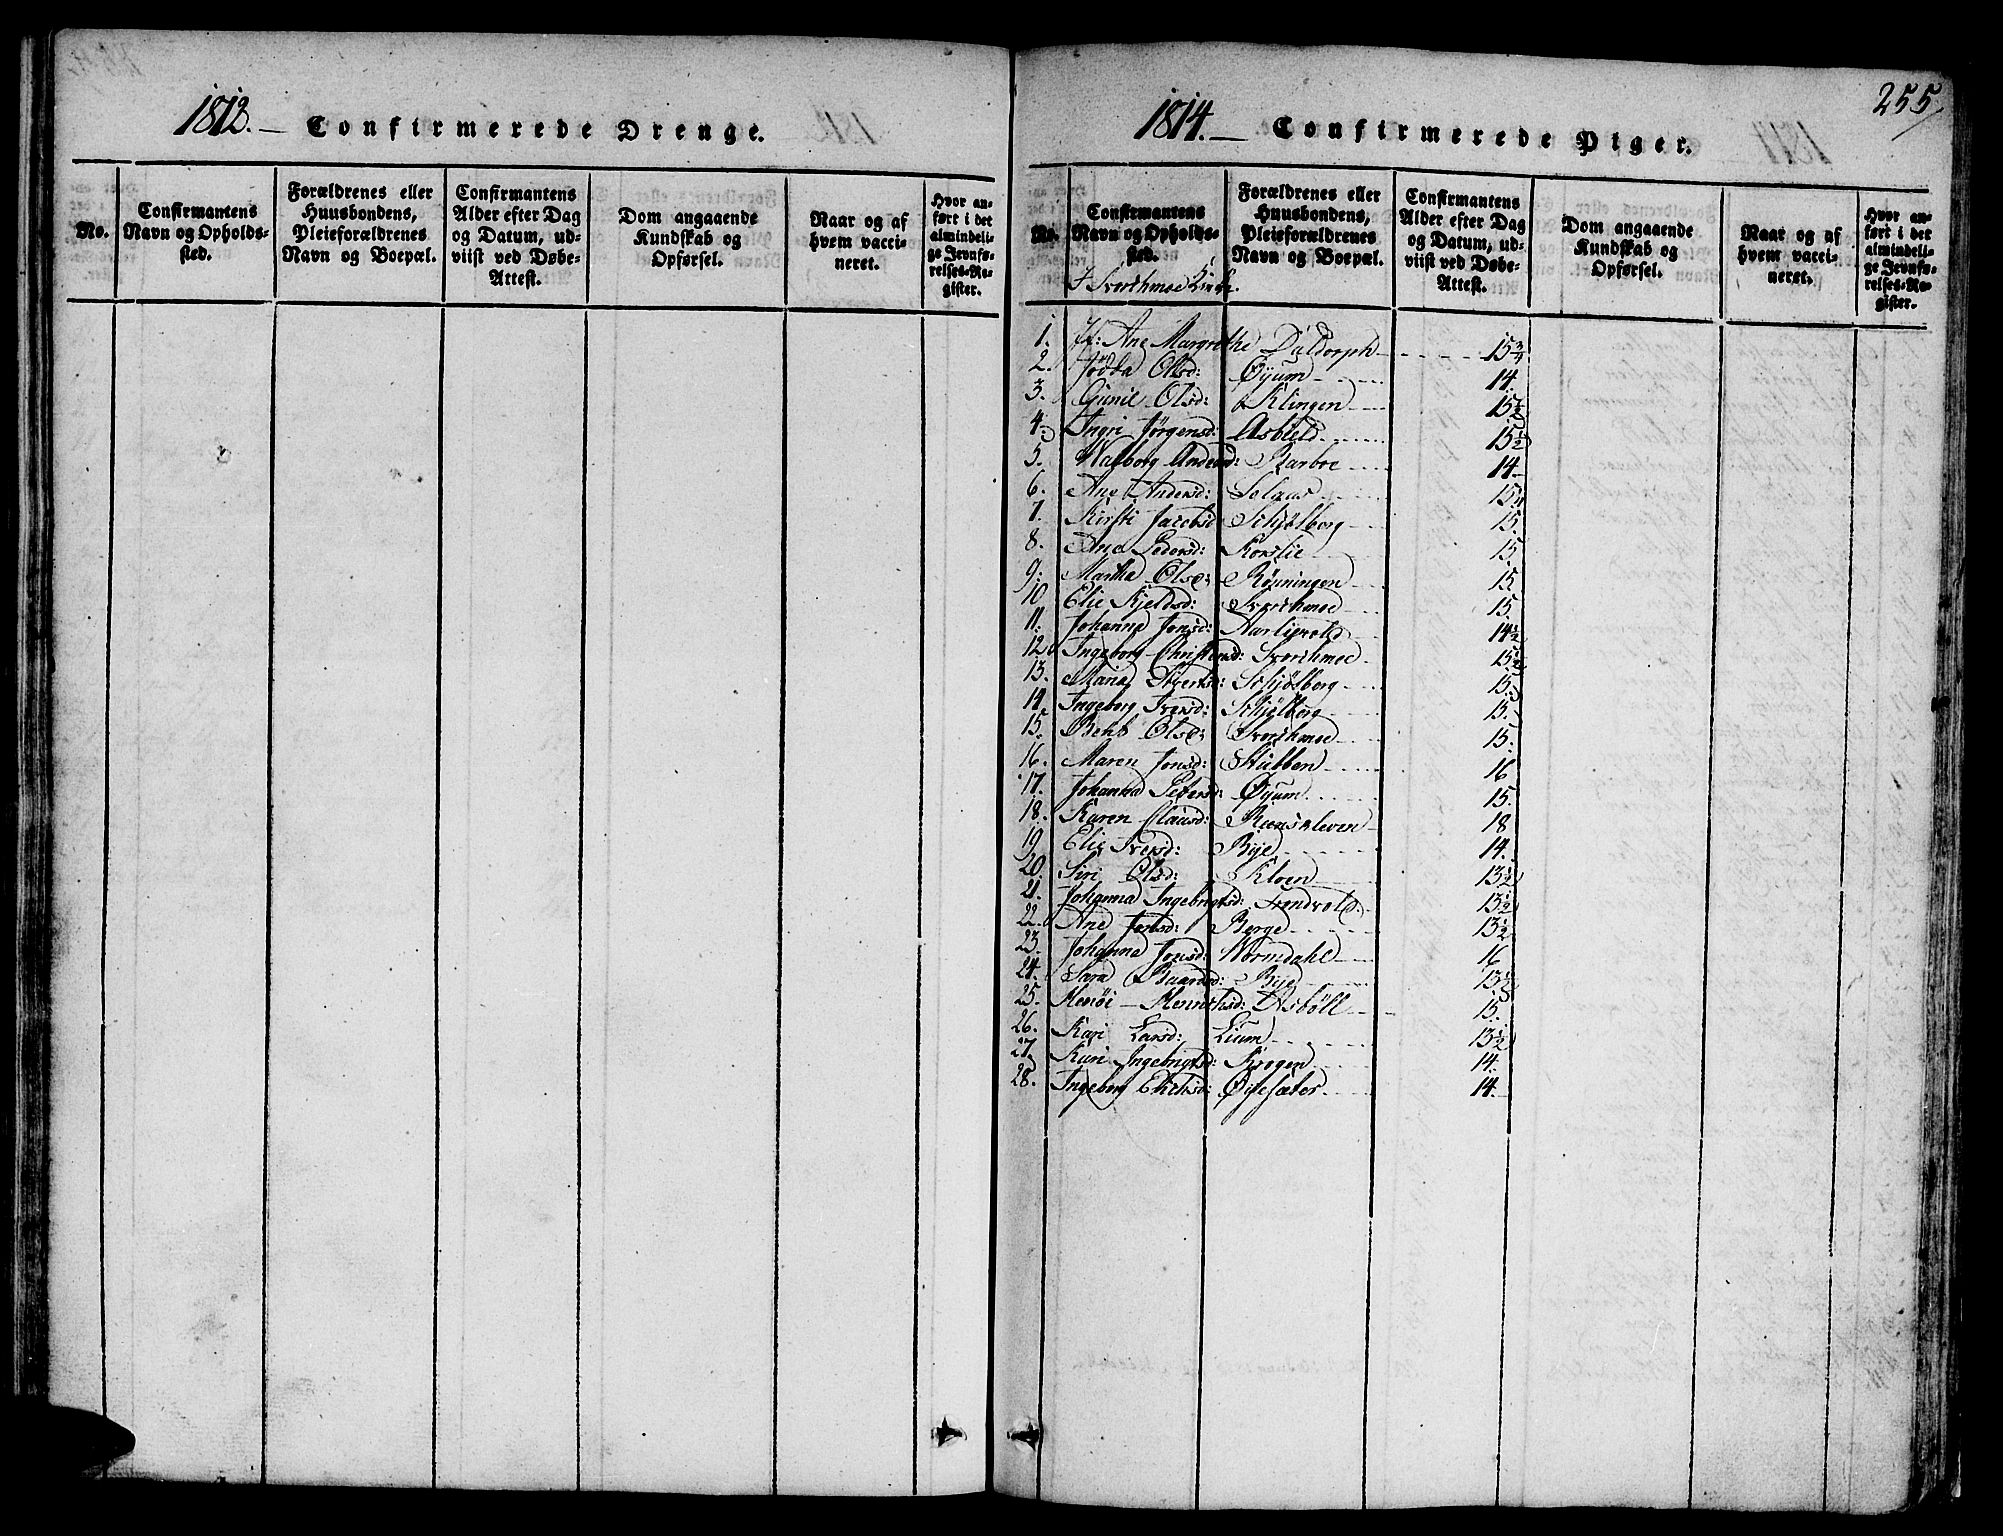 1813. — Confirmerede Drenge.
No.
Confirmantens
Navn og Opholds-
sted.
Forældrenes eller
Huusbondens,
Pleieforældrenes
Navn og Boepæl.
Confirmantens
Alder efter Dag
og Datum, ud-
viist ved Døbe-
Attest.
Dom angaaende
Kundskab og
Opførsel.
Naar og af
hvem vacci-
neret.
Hvor an-
ført i det
almindeli-
ge Jevnfø-
relses-Re-
gister.
255
1814. — Confirmerede Piger.
No.
Confirmantens
Navn og Opholds-
sted.
Forældrenes eller
Huusbondens,
Pleieforældrenes
Navn og Boepæl.
Confirmantens
Alder efter Dag
og Datum, ud-
viist ved Døbe-
Attest.
Dom angaaende
Kundskab og
Opførsel.
Naar og af
hvem vacci-
neret.
Hvor an-
ført i det
almindeli-
ge Jevnfø-
relses-Re-
gister.
I Svorchmoe Kirke.
1. Jf: Ane Margrethe Daldorph 15 3/4
2. Olsd: Øyum 14.
3. Gunil Olsd: Klingen 15 1/2
4. Ingri Jørgensd: Asbield 15 1/2
5. Walborg Andersd: 14
6. Ane Andersd: Solaas 15
7. Kirsti Jacobsd: Schjølborg 15.
8. Ane Pedersd: Korslie 15
9. Martha Olsd: Rønningen 15
10 Elie Kjeldsd: Svorchmoe 15.
11. Johanna Jonsd: 14 1/2
12 Ingeborg Christensd: Svorchmoe 15 1/2
13. Maria Sivertsd: Schjølborg 15.
14 Ingeborg Iversd: Schjølborg 15.
15. Olsd: Svorchmoe 15.
16. Maren Jonsd: Stubben 16
17. Johanna Petersd: Øyum 15.
18. Karen Clausd: Reenskleven 18
19 Elie Iversd: Bye 14.
20. Siri Olsd: Kloen 13 1/2
21. Johanna Ingebrigtsd: 13 1/2
22. Ane Jonsd: Berge 13 1/2
23. Johanna Jonsd: Wormdahl 16
24. Sara Baardsd: Bye 13 1/2
25. Asbøll 15.
26. Kari Larsd: Lium 13 1/2
27. Kari Ingebrigtsd: Krogen 14.
28. Ingeborg Erichsd: Øiesæter 14.